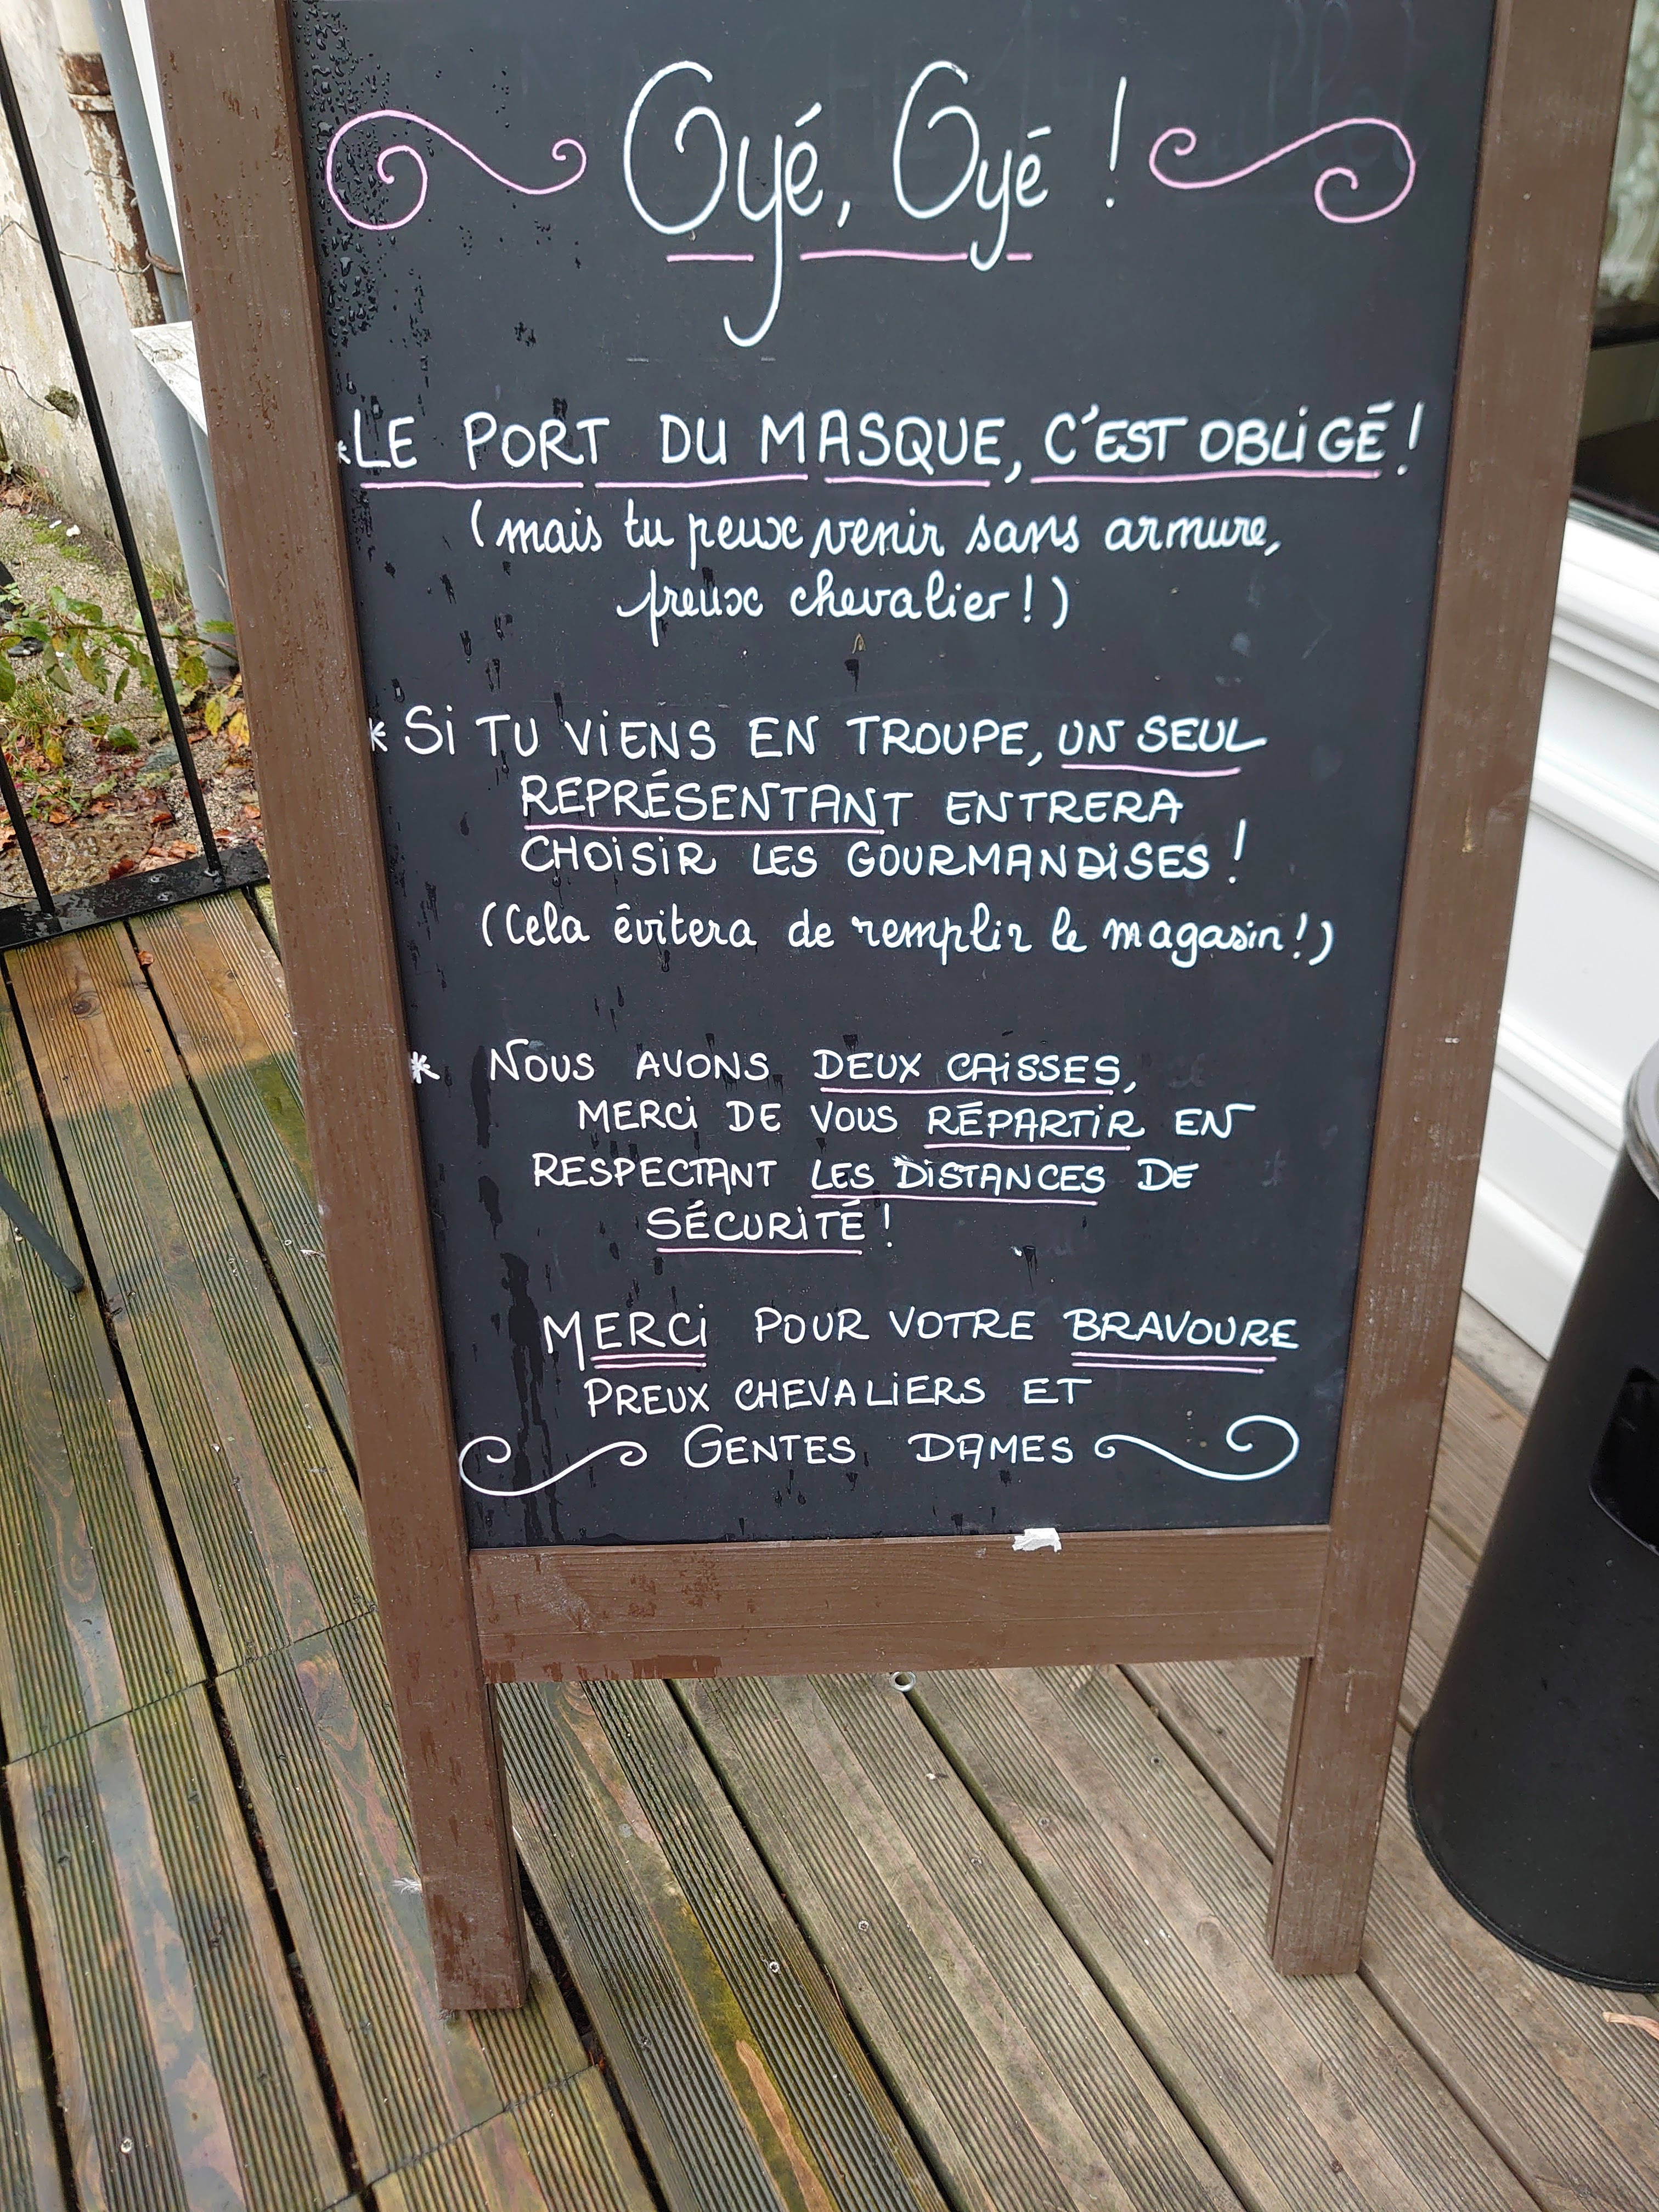 Oyé, Oyé !
*LE PORT DU MASQUE, C'EST OBLIGÉ !
(mais tu peux venir sans armure,
preux chevalier ! )
* SI TU VIENS EN TROUPE, UN SEUL
REPRÉSENTANT ENTRERA
CHOISIR LES GOURMANDISES !
(Cela évitera de remplir le magasin ! )
* NOUS AVONS DEUX CAISSES,
MERCI DE VOUS RÉPARTIR EN
RESPECTANT LES DISTANCES DE
SÉCURITÉ !
MERCI POUR VOTRE BRAVOURE
PREUX CHEVALIERS ET
GENTES DAMES